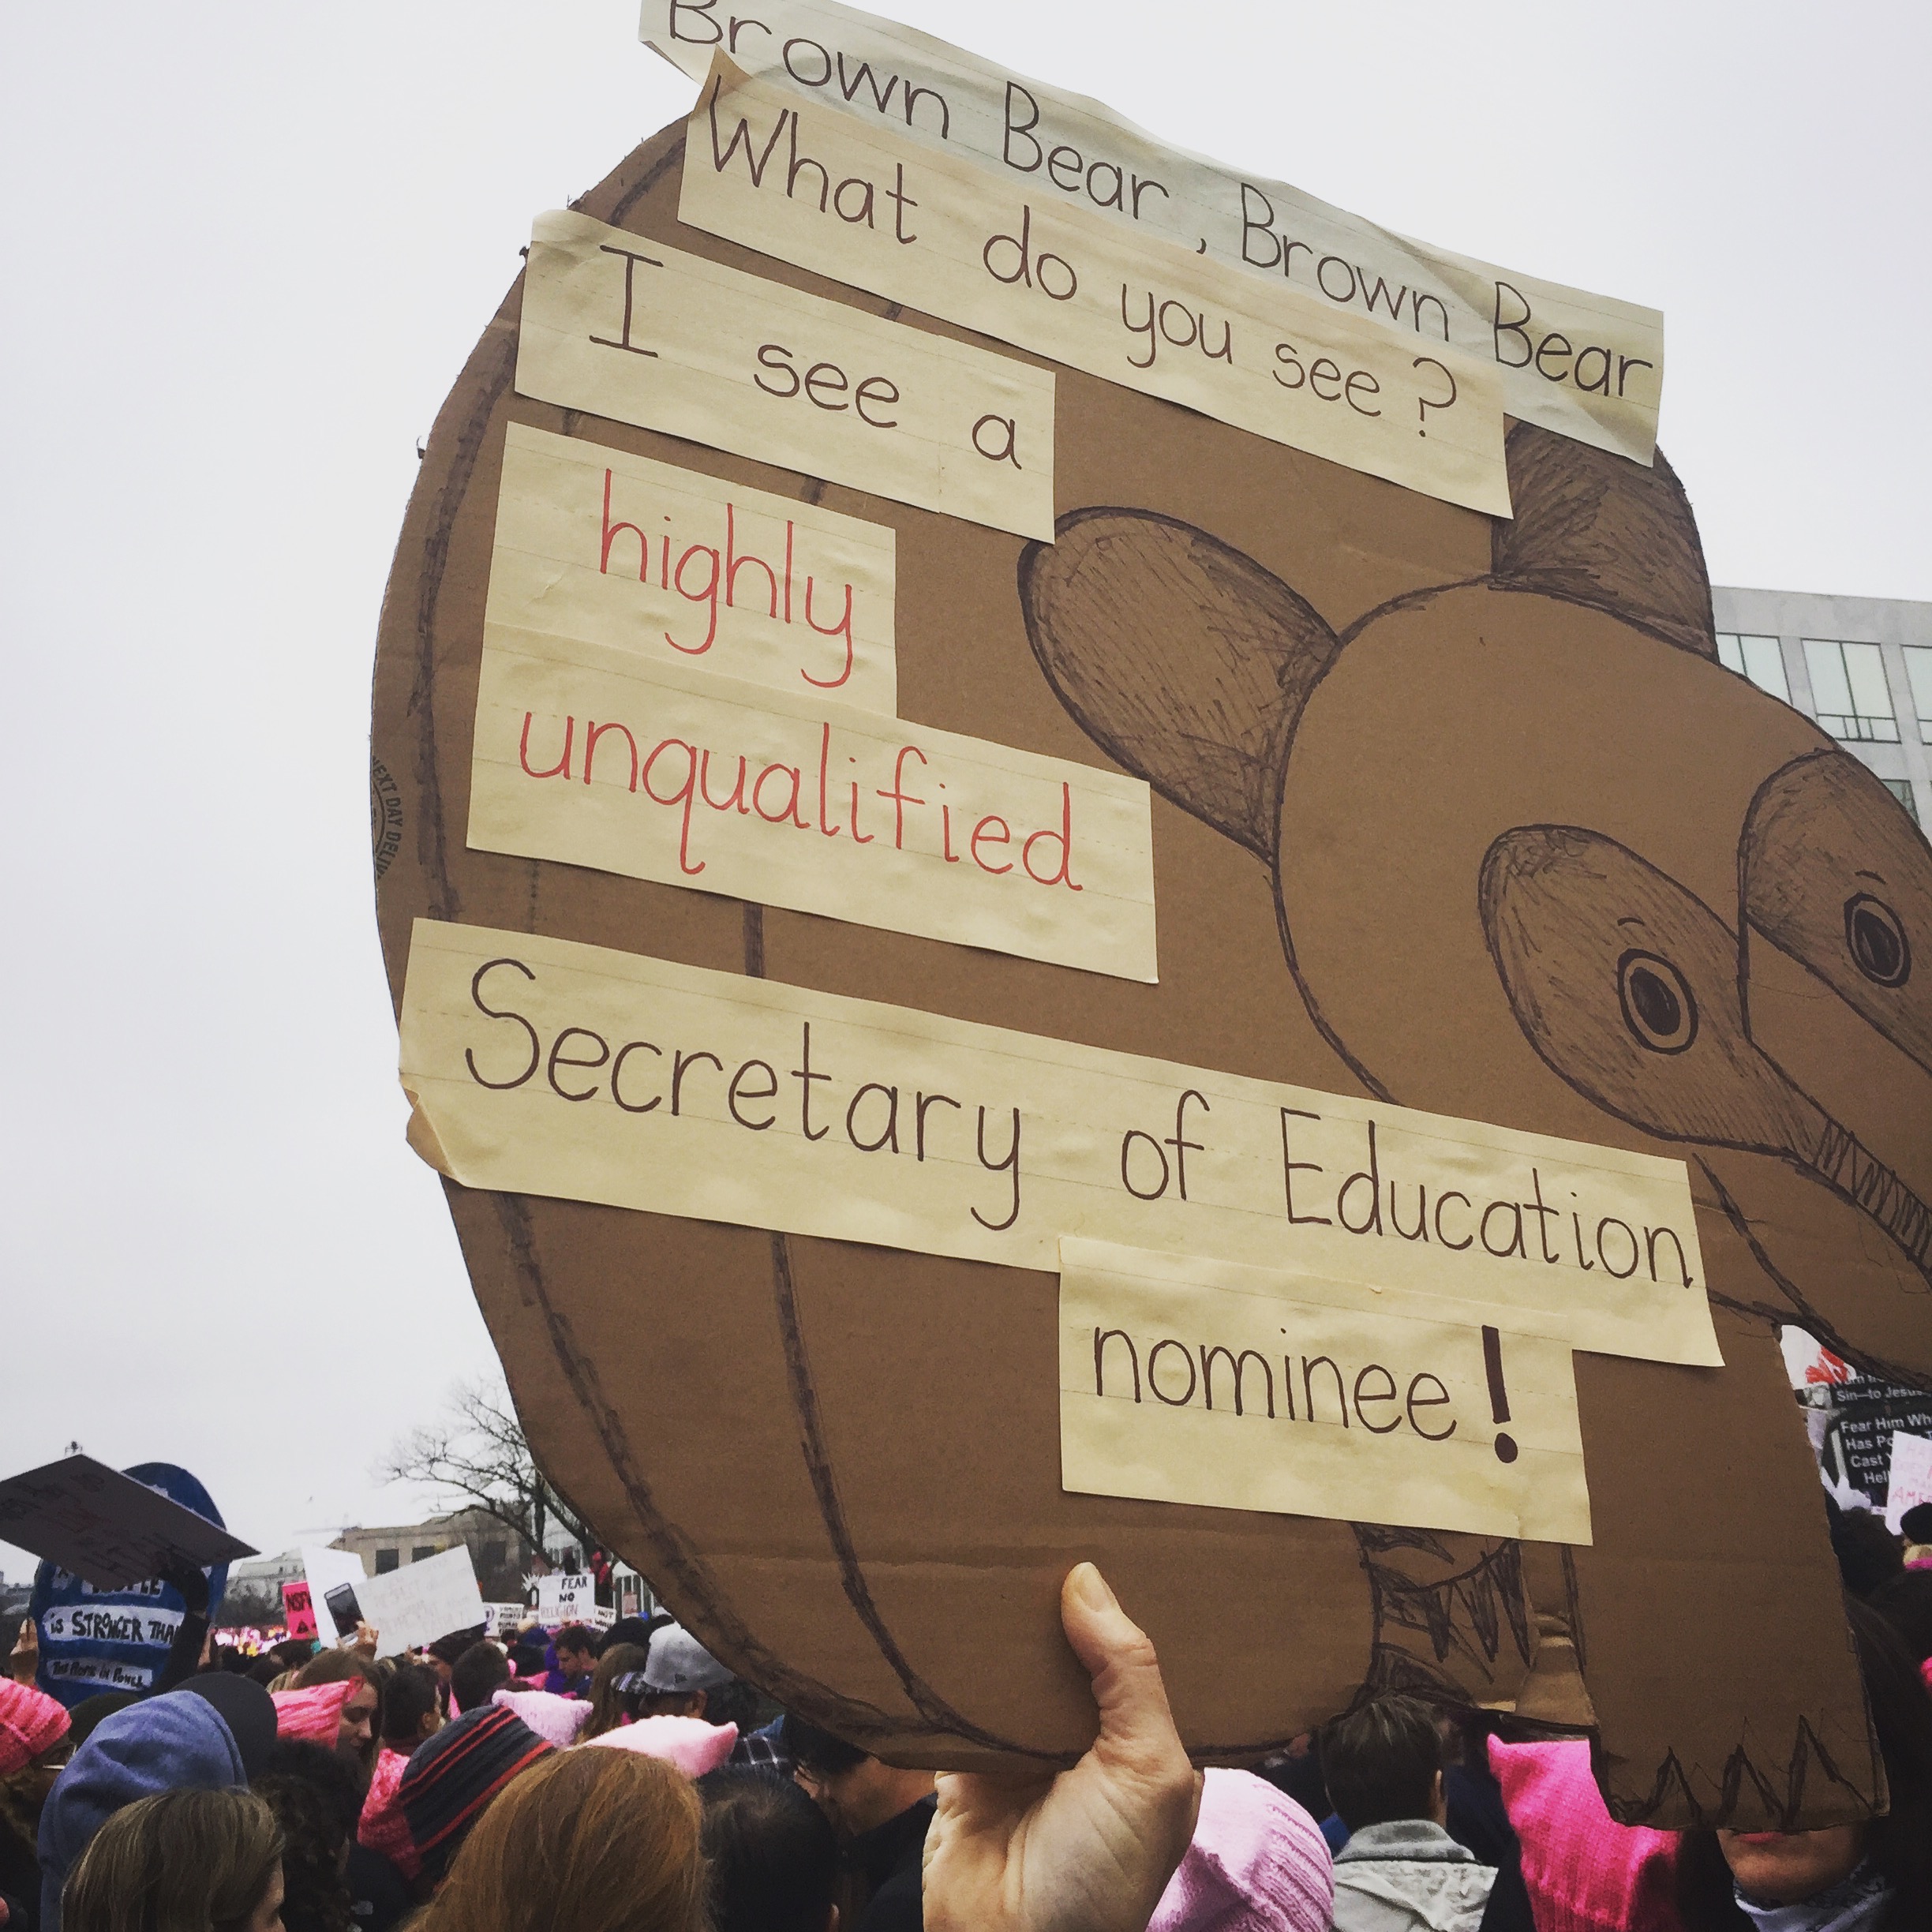 Brown Bear, Brown Bear
What do you see?
I see a
highly
unqualified
Secretary of Education
nominee!
NEXT DAY
is STRONGER THAN
FEAR
NO
RELIGION
Sin—to Jesus
Fear Him Wh
Has Po
Cast
Hell